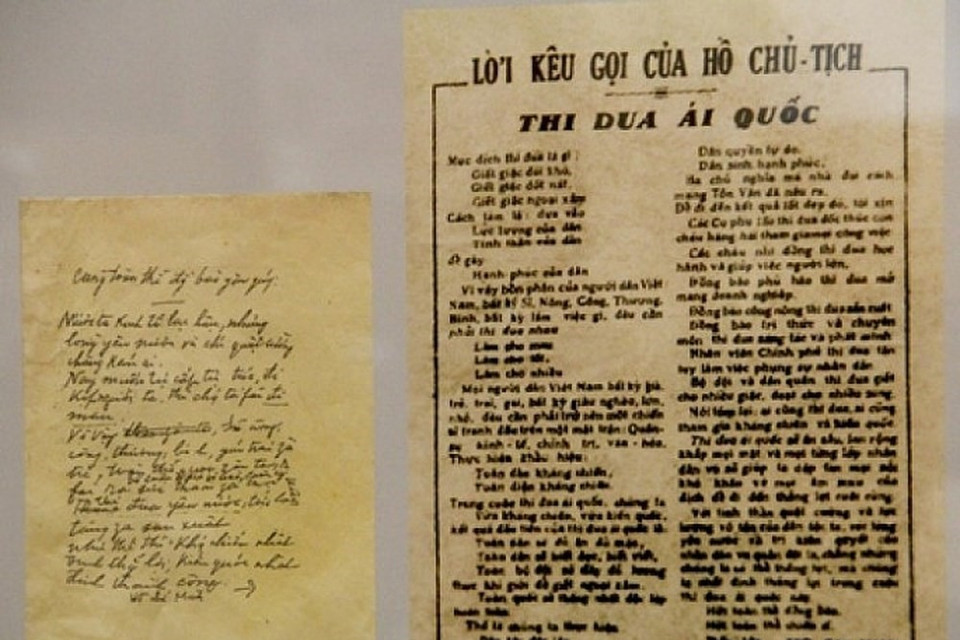 Nước ta kinh tế lạc hậu, nhưng
lòng yêu nước và chí quật cường
chẳng kém ai.
Nay muốn
người ta, thì chỉ ta phải đi
mau.
Vì vậy
công, thương, binh, gái trai già
trẻ,
yêu nước,
tăng gia sản xuất
như thế thì kháng chiến nhất
định thắng lợi, kiến quốc nhất
định thành công.
Hồ Chí Minh
LỜI KÊU GỌI CỦA HỒ CHỦ-TỊCH
THI DUA ÁI QUỐC
Mục đích thi đua là gì:
Giết giặc đói khổ,
Giết giặc dốt nát,
Giết giặc ngoại xâm
Cách làm là: dựa vào
Lực lượng của dân
Tinh thần của dân
để gây
Hạnh phúc của dân
Vì vậy bổn phận của người dân Việt
Nam, bất kỳ Sĩ, Nông, Công, Thương,
Binh, bất kỳ làm việc gì, đều cần
phải thi đua nhau
Làm cho mau
Làm cho tốt,
Làm cho nhiều
Mọi người dân Việt Nam bất kỳ già,
trẻ, trai, gái, bất kỳ giàu nghèo, lớn,
nhỏ, đều cần phải trở nên một chiến
sĩ tranh đấu trên mặt trận: Quân-
sự, kinh-tế, chính trị, văn-hóa.
Thực hiện khẩu hiệu:
Toàn dân kháng chiến,
Toàn diện kháng chiến.
Trong cuộc thi đua ái quốc, chúng ta
Vừa kháng chiến, vừa kiến quốc,
kết quả đầu tiên của thi đua ái quốc là:
Toàn dân sẽ đủ ăn đủ mặc,
Toàn dân sẽ biết đọc, biết viết,
Toàn bộ đội sẽ đầy đủ lương
thực khí giới để giết ngoại xâm,
Toàn quốc sẽ thống nhất độc lập
hoàn toàn.
Thế là chúng ta thực hiện
Dân quyền tự do,
Dân sinh hạnh phúc,
Ba chủ nghĩa mà nhà đại cách
mạng Tôn Văn đã nêu ra.
Để đi đến kết quả tốt đẹp đó, tôi xin
Các Cụ phụ lão thi đua đốc thúc con
cháu hăng hái tham gia mọi công việc
Các cháu nhi đồng thi đua học
hành và giúp việc người lớn,
Đồng bào phú hào thi đua mở
mang doanh nghiệp.
Đồng bào công nông thi đua sản xuất
Đồng bào trí thức và chuyên
môn thi đua sáng tác và phát minh
Nhân viên Chính phủ thi đua tận
tụy làm việc phụng sự nhân dân
Bộ đội và dân quân thi đua giết
cho nhiều giặc, đoạt cho nhiều súng.
Nói tóm lại: ai cũng thi đua, ai cũng
tham gia kháng chiến và kiến quốc.
Thi đua ái quốc sẽ ăn sâu, lan rộng
khắp mọi mặt và mọi từng lớp nhân
dân và sẽ giúp ta dập tan mọi nỗi
khó khăn và mọi âm mưu của
địch để đi đến thắng lợi cuối cùng.
Với tinh thần quật cường và lực
lượng vô tận của dân tộc ta, với lòng
yêu nước và chí kiên quyết của
nhân dân và quân đội ta, chẳng những
chúng ta có thể thắng lợi, mà chúng
ta nhất định thắng lợi